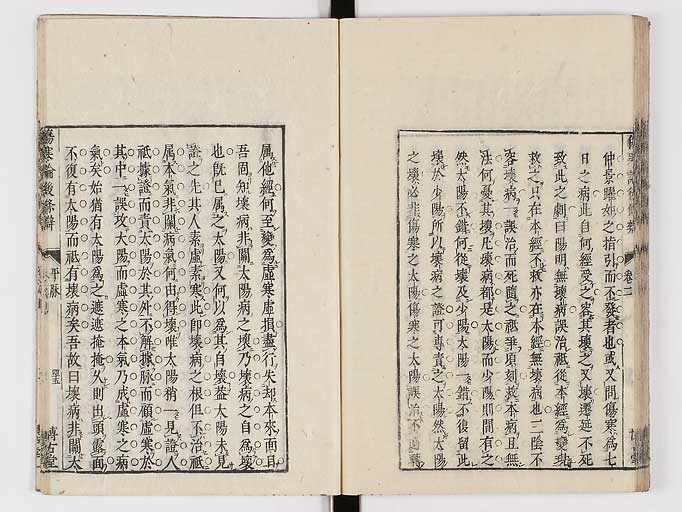 仲景曄如之指引而不發者也或又問傷寒為七
日之病此自何經受之容其壞之又壞遷延不死
致此之劇曰陽明無壞病誤治祗從本經為變現
救之只在本經不救亦在本經無壞病也二陰不
容壞病一誤治而死隨之祗爭頃刻故本病且無
法何憂其壞凡壞病都是太陽而少陽則間有之
然太陽不錯何從壞及少陽太陽一錯不復留此
壞於少陽所以壞病之證可專責之太陽然太陽
之壞必非傷寒之太陽傷寒之太陽誤治不過轉
属他經何至變為虛寒虛損盡行失却本來面目
吾固知壞病非關太陽病之壞乃壞病之自為壞
也旣已属之太陽又何以為其自壞葢太陽未見
證之先其人素虛素寒此卽壞病之根但不治祗
属本氣非關病氣何由得壞唯太陽稍一見證人
祗據證而責太陽於其外不解據脉而顧虛寒於
其中一誤攻太陽而虛寒之本氣乃成虛寒之病
氣矣始猶有太陽為之遮遮掩掩久則出頭露面
不復有太陽而祗有壞病矣吾故曰壞病非關太
傷寒論後條辨
平脉
卷二